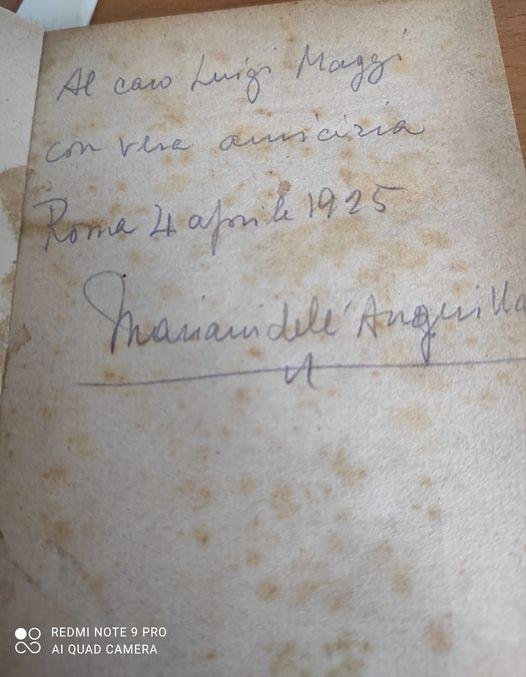 Al caro Luigi Maggi
con vera amicizia
Roma 4 aprile 1925
Mariani dell'Anguilla
REDMI NOTE 9 PRO
AI QUAD CAMERA